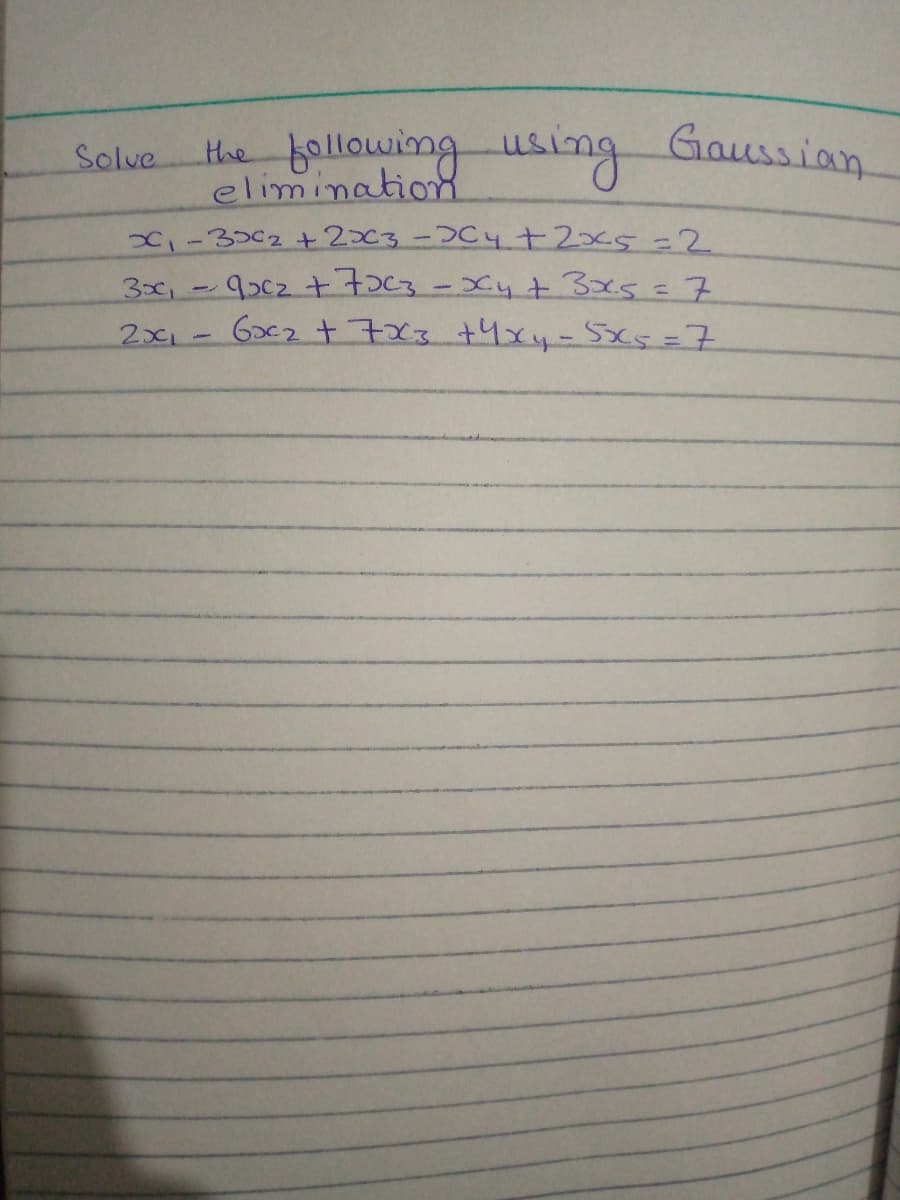 Solve the following using Gaussian
elimination
x₁ - 3x₂ + 2x₃ - x₄ + 2x₅ = 2
3x₁ - 9x₂ + 7x₃ - x₄ + 3x₅ = 7
2x₁ - 6x₂ + 7x₃ + 4x₄ - 5x₅ = 7